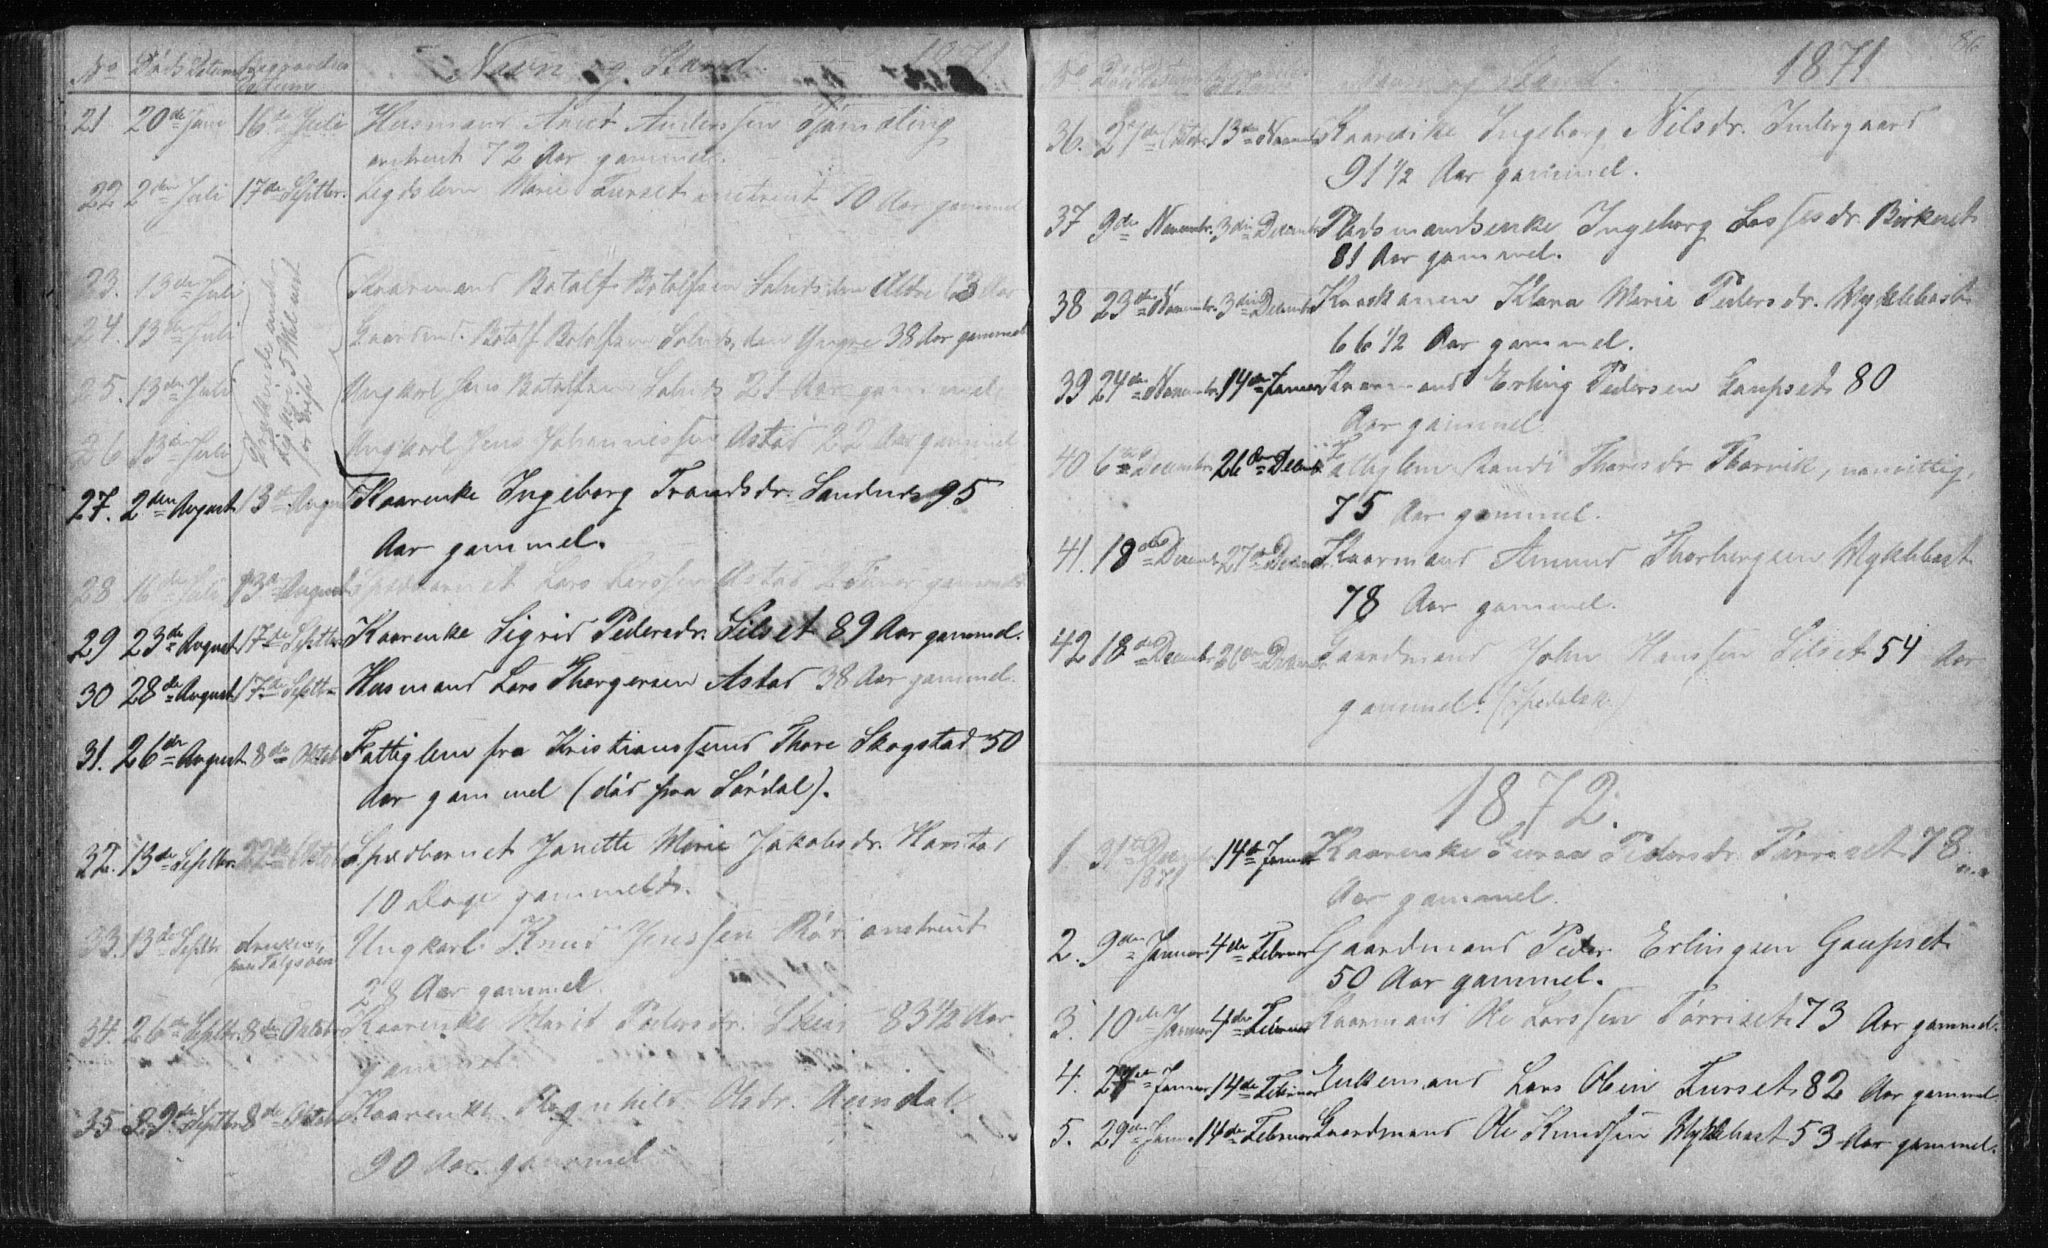 No Døds Datum Begravelses Datum Navn og Stand 1871
21 20de Juni 16de Juli Husmand Anders Anderssen
omtrent 72 Aar gammel.
22 2den Juli 17de Septbr. Legdslem Marie Furset omtrent 70 Aar gammel
23. 13de Juli Kaarmand Botolf Botolfsen Solnds den Ældre 63 Aar
24. 13de Juli Gaardmd. Botolf Botolfsen Solnds, den Yngre 38 Aar gammel
25. 13de Juli Ungkarl Jens Botolfsen Solnds 21 Aar gammel
26 13de Juli Ungkarl Jens Johannessen Astad 22 Aar gammel
27. 2den August 13de August Kaarenke Ingeborg Trondsdr. Sandnes 95
Aar gammel.
28 16de Juli 13de August Spedbarnet Lars Larssen Astad 2 Timer gammelt
29 23de August 17de Septbr. Kaarenke Sigrid Pedersdr. Silset 89 Aar gammel.
30 28de August 17de Septbr. Husmand Lars Thorgersen Astad 38 Aar gammel.
31. 26de August 8de Octob Fattiglem fra Kristianssund Thore Skogstad 50
Aar gammel (død fra Sørdal).
32. 13de Septbr. 22de Octob Spedbarnet Janette Marie Jakobsdr. Harstad
10 Dage gammelt.
33. 13de Septbr druknet, Ungkarl Knud Jenssen Rød omtrent
28 Aar gammel.
34. 26de Septbr. 8de Octobr Kaarenke Marit Pedersdr. Skeis 83 1/2 Aar
gammel
35 29de Septbr 8de Octob Kaarenke Ragnhild Olsdr. Aundal.
90 Aar gammel
86
No og Stand 1871
36. 27de Octobr. 13de Novembr Ingeborg Nilsdr. Indergaard
91 1/2 Aar gammel.
37 9de Novembr. 3die Decembr Pladsmandsenke Ingeborg Lassesdr. Birkeset
81 Aar gammel.
38 23de Novembr. 3die Decembr Kaarkonen Klara Marie Pedersdr. Myklebost
66 1/2 Aar gammel.
39 24de Novembr. 14de Januar Kaarmand Erling Pedersen Gaupset 80
Aar gammel
40 6te Decembr 26de Decembr Fattiglem Randi Thoresdr. Thorvik, vanvittig,
75 Aar gammel.
41. 18de Decembr 27de Decembr. Kaarmand Amund Thorbergsen Myklebost
78 Aar gammel.
42 18de Decembr 26de Decembr Gaardmand John Hanssen Silset 54 Aar
gammel. (spedalsk.)
1872.
1. 31te Decembr 1871 14de Januar Kaarenke Pedersdr. Tørriset 78
Aar gammel.
2. 9de Januar 4de Februar Gaardmand Peder Erlingsen Gaupset
50 Aar gammel.
3. 10de Januar 4de Februar Kaarmand Ole Larssen Tørriset 73 Aar gammel.
4. 27de Januar 14de Februar Enkemand Lars Olsen Furset 82 Aar gammel
5. 29de Januar 14de Februar Gaardmand Ole Knudsen Myklebost 53 Aar gammel.